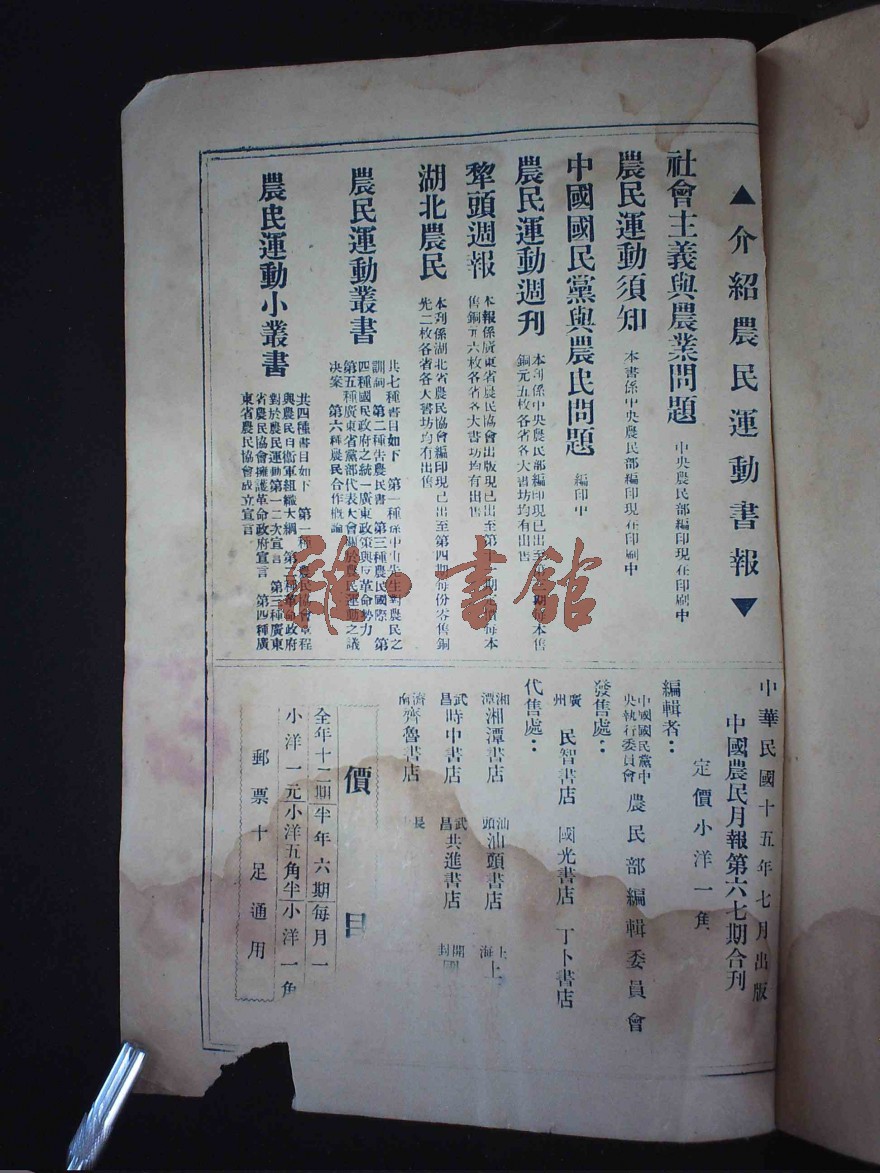 ▲介紹農民運動書報▼
社會主義與農業問題 中央農民部編印現在印刷中
農民運動須知 本書係中央農民部編印現在印刷中
中國國民黨與農民問題 編印中
農民運動週刊
本刊係中央農民部編印現已出至第 期每本售
銅元五枚各省各大書坊均有出售
犂頭週報
本報係廣東省農民協會出版現已出至第 期 每本
售銅元六枚各省各大書坊均有出售
湖北農民
本刊係湖北省農民協會編印現已出至第四期每份零售銅
元二枚各省各大書坊均有出售
農民運動叢書
共七種書目如下 第一種孫中山先生對農民之
訓詞 第二種告農民書 第三種農民國際 第
四種國民政府之統一廣東政策與反革命勢力
第五種廣東省黨部代表大會關於農民運動之議
決案 第六種農民合作概論
農民運動小叢書
共四種書目如下 第一種農民協會章程
與農民自衛軍組織大綱 第二種革命政府
對於農民運動第一二次宣言 第三種廣東
省農民協會擁護革命政府宣言 第四種廣
東省農民協會成立宣言
中華民國十五年七月出版
中國農民月報第六七期合刊
定價小洋一角
編輯者：
中國國民黨中
央執行委員會 農民部編輯委員會
發售處：
廣州 民智書店 國光書店 丁卜書店
代售處：
湘潭 湘潭書店 汕頭 汕頭書店 上海 上
武昌 時中書店 武昌 共進書店 開封
濟南 齊魯書店 長
價目
全年十二期 半年六期 每月一
小洋一元 小洋五角半 小洋一角
郵票十足通用
雅·書館